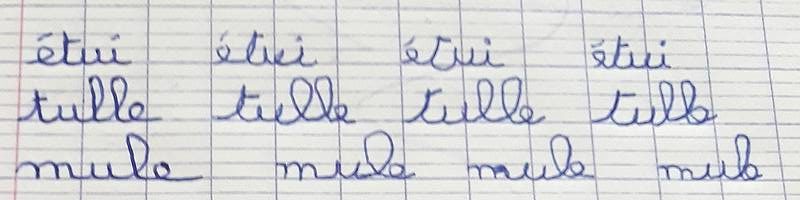 étui étui étui étui
tulle tulle tulle tulle
mule mule mule mule